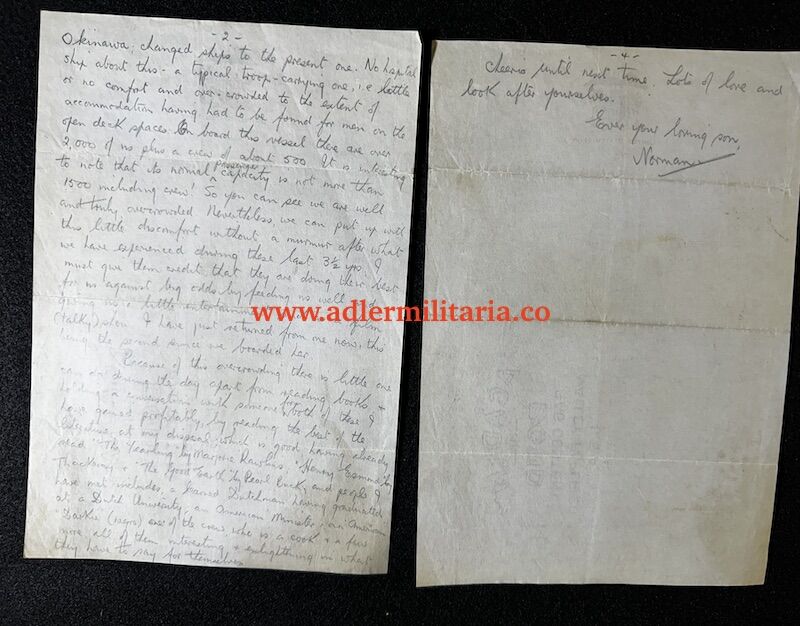 -2-
Okinawa; changed ships to the present one. No hospital
ship about this - a typical troop-carrying one, i.e little
or no comfort and over-crowded to the extent of
accommodation having had to be found for men on the
open deck spaces. On board this vessel there are over
2,000 of us plus a crew of about 500. It is interesting
to note that its normal passenger capacity is not more than
1500 including crew! So you can see we are well
and truly overcrowded. Nevertheless, we can put up with
this little discomfort without a murmur after what
we have experienced during these last 3½ yrs. I
must give them credit, that they are doing their best
for us against big odds by feeding us well
giving us a little entertainment film
(talky) show. I have just returned from one now, this
being the second since we boarded her.
Because of this overcrowding there is little one
can do during the day apart from reading books, &
holding a conversation with someone, from both of these I
have gained profitably, by reading the best in the
literature at my disposal which is good, having already
read "The Yearling" by Marjorie Rawlins, "Henry Esmond" by
Thackeray & "The Good Earth" by Pearl Buck, and people I
have met include, a learned Dutchman having graduated
at a Dutch University, an American Minister, an American
Darkie (negro) one of the crew who is a cook & a few
more, all of them interesting & enlightening in what
they have to say for themselves.
-4-
Cheerio until next time. Lots of love and
look after yourselves.
Ever your loving son,
Norman
www.adlermilitaria.co